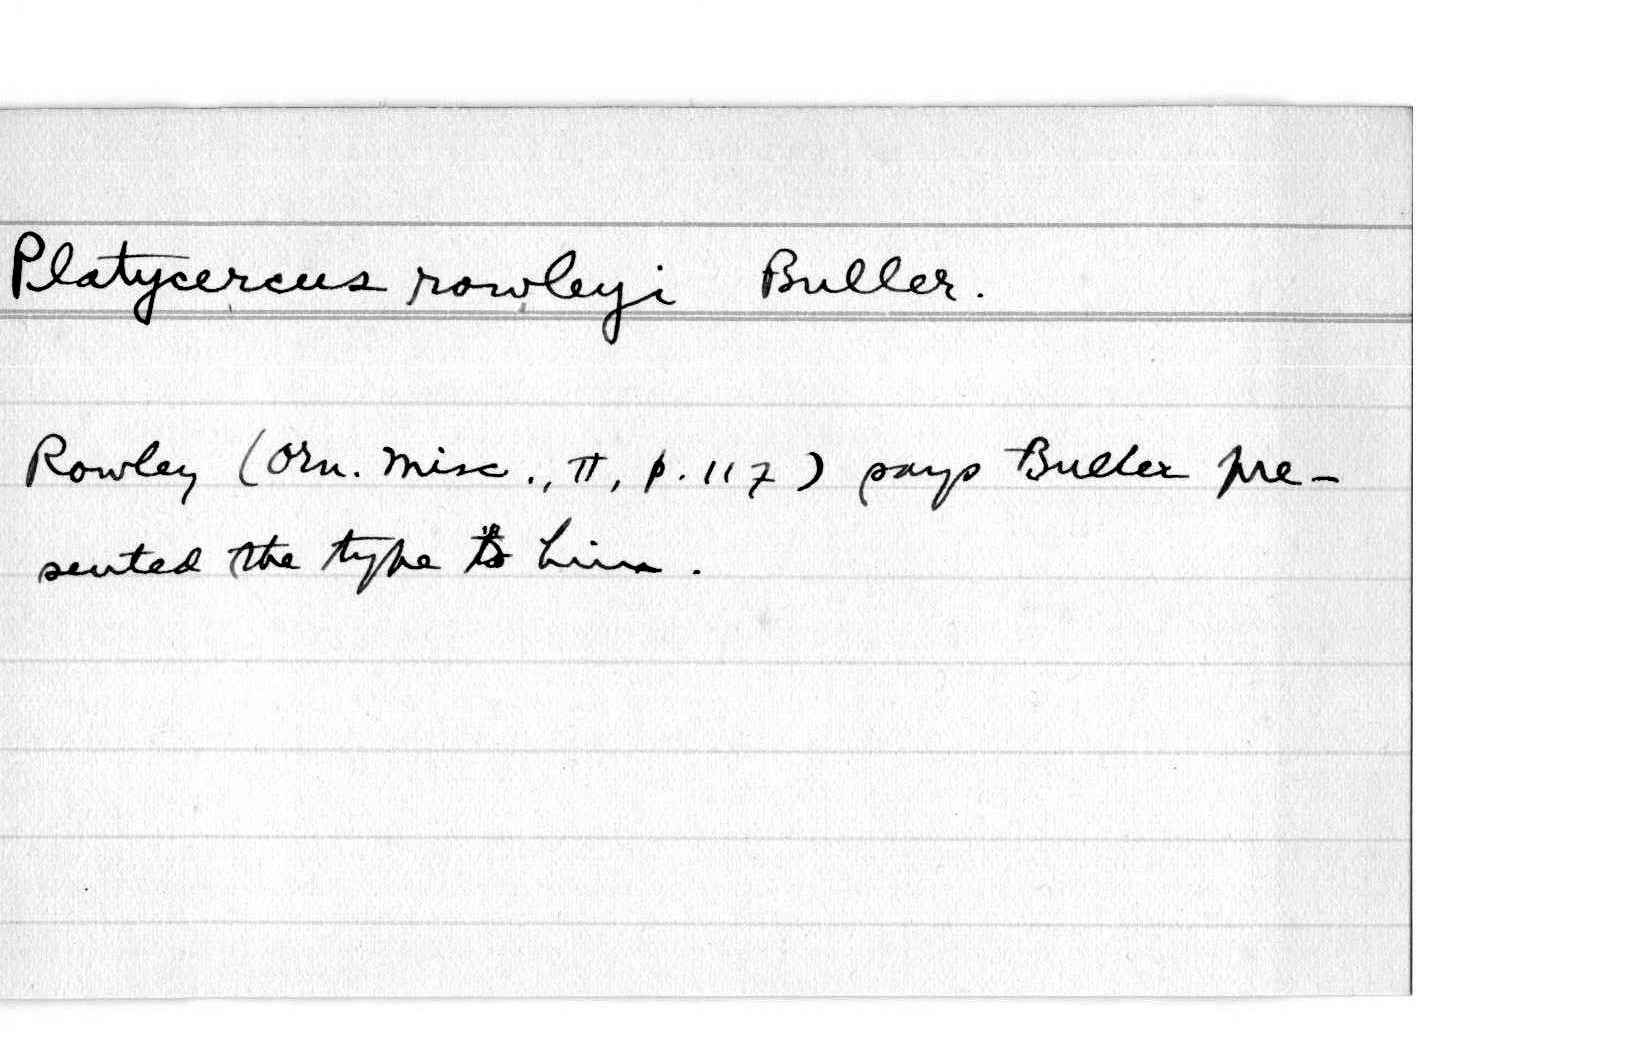 Platycercus rowleyi Buller.
Rowley (Orn. Misc., II, p. 117) says Buller pre-
sented the type to him.